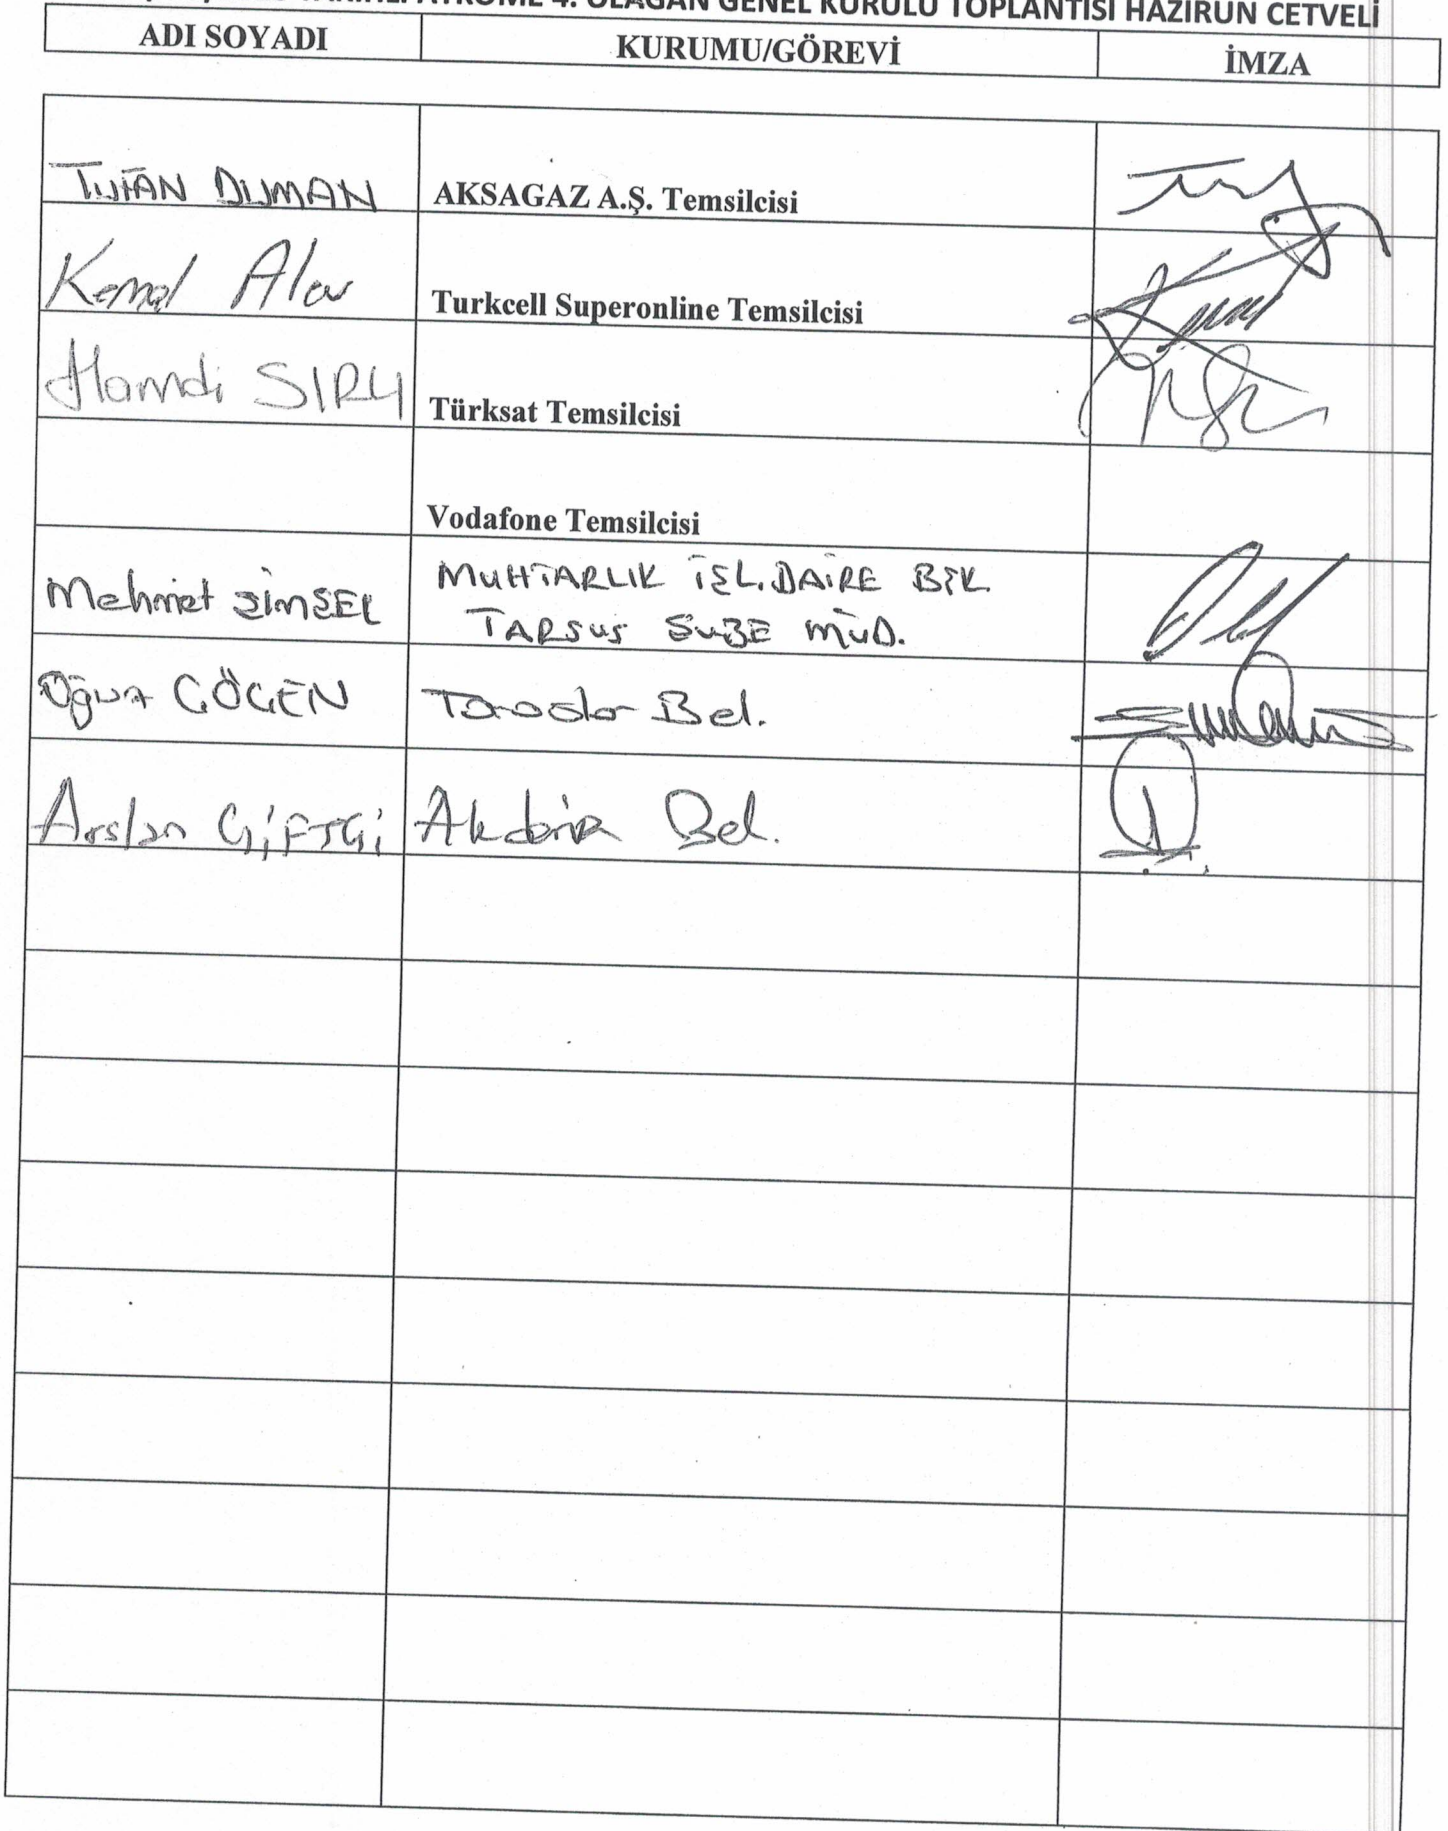 AYKOME 4. OLAĞAN GENEL KURULU TOPLANTISI HAZIRUN CETVELİ
ADI SOYADI KURUMU/GÖREVİ İMZA
TUFAN DUMAN AKSAGAZ A.Ş. Temsilcisi
Kemal Alav Turkcell Superonline Temsilcisi
Hamdi Türksat Temsilcisi
Vodafone Temsilcisi
MUHTARLIK İŞL.DAİRE BŞK.
Mehmet ŞİMŞEK
TARSUS ŞUBE MÜD.
Oğuz GÖÇEN Toroslar Bel.
Arslan ÇİFTÇİ Akdeniz Bel.